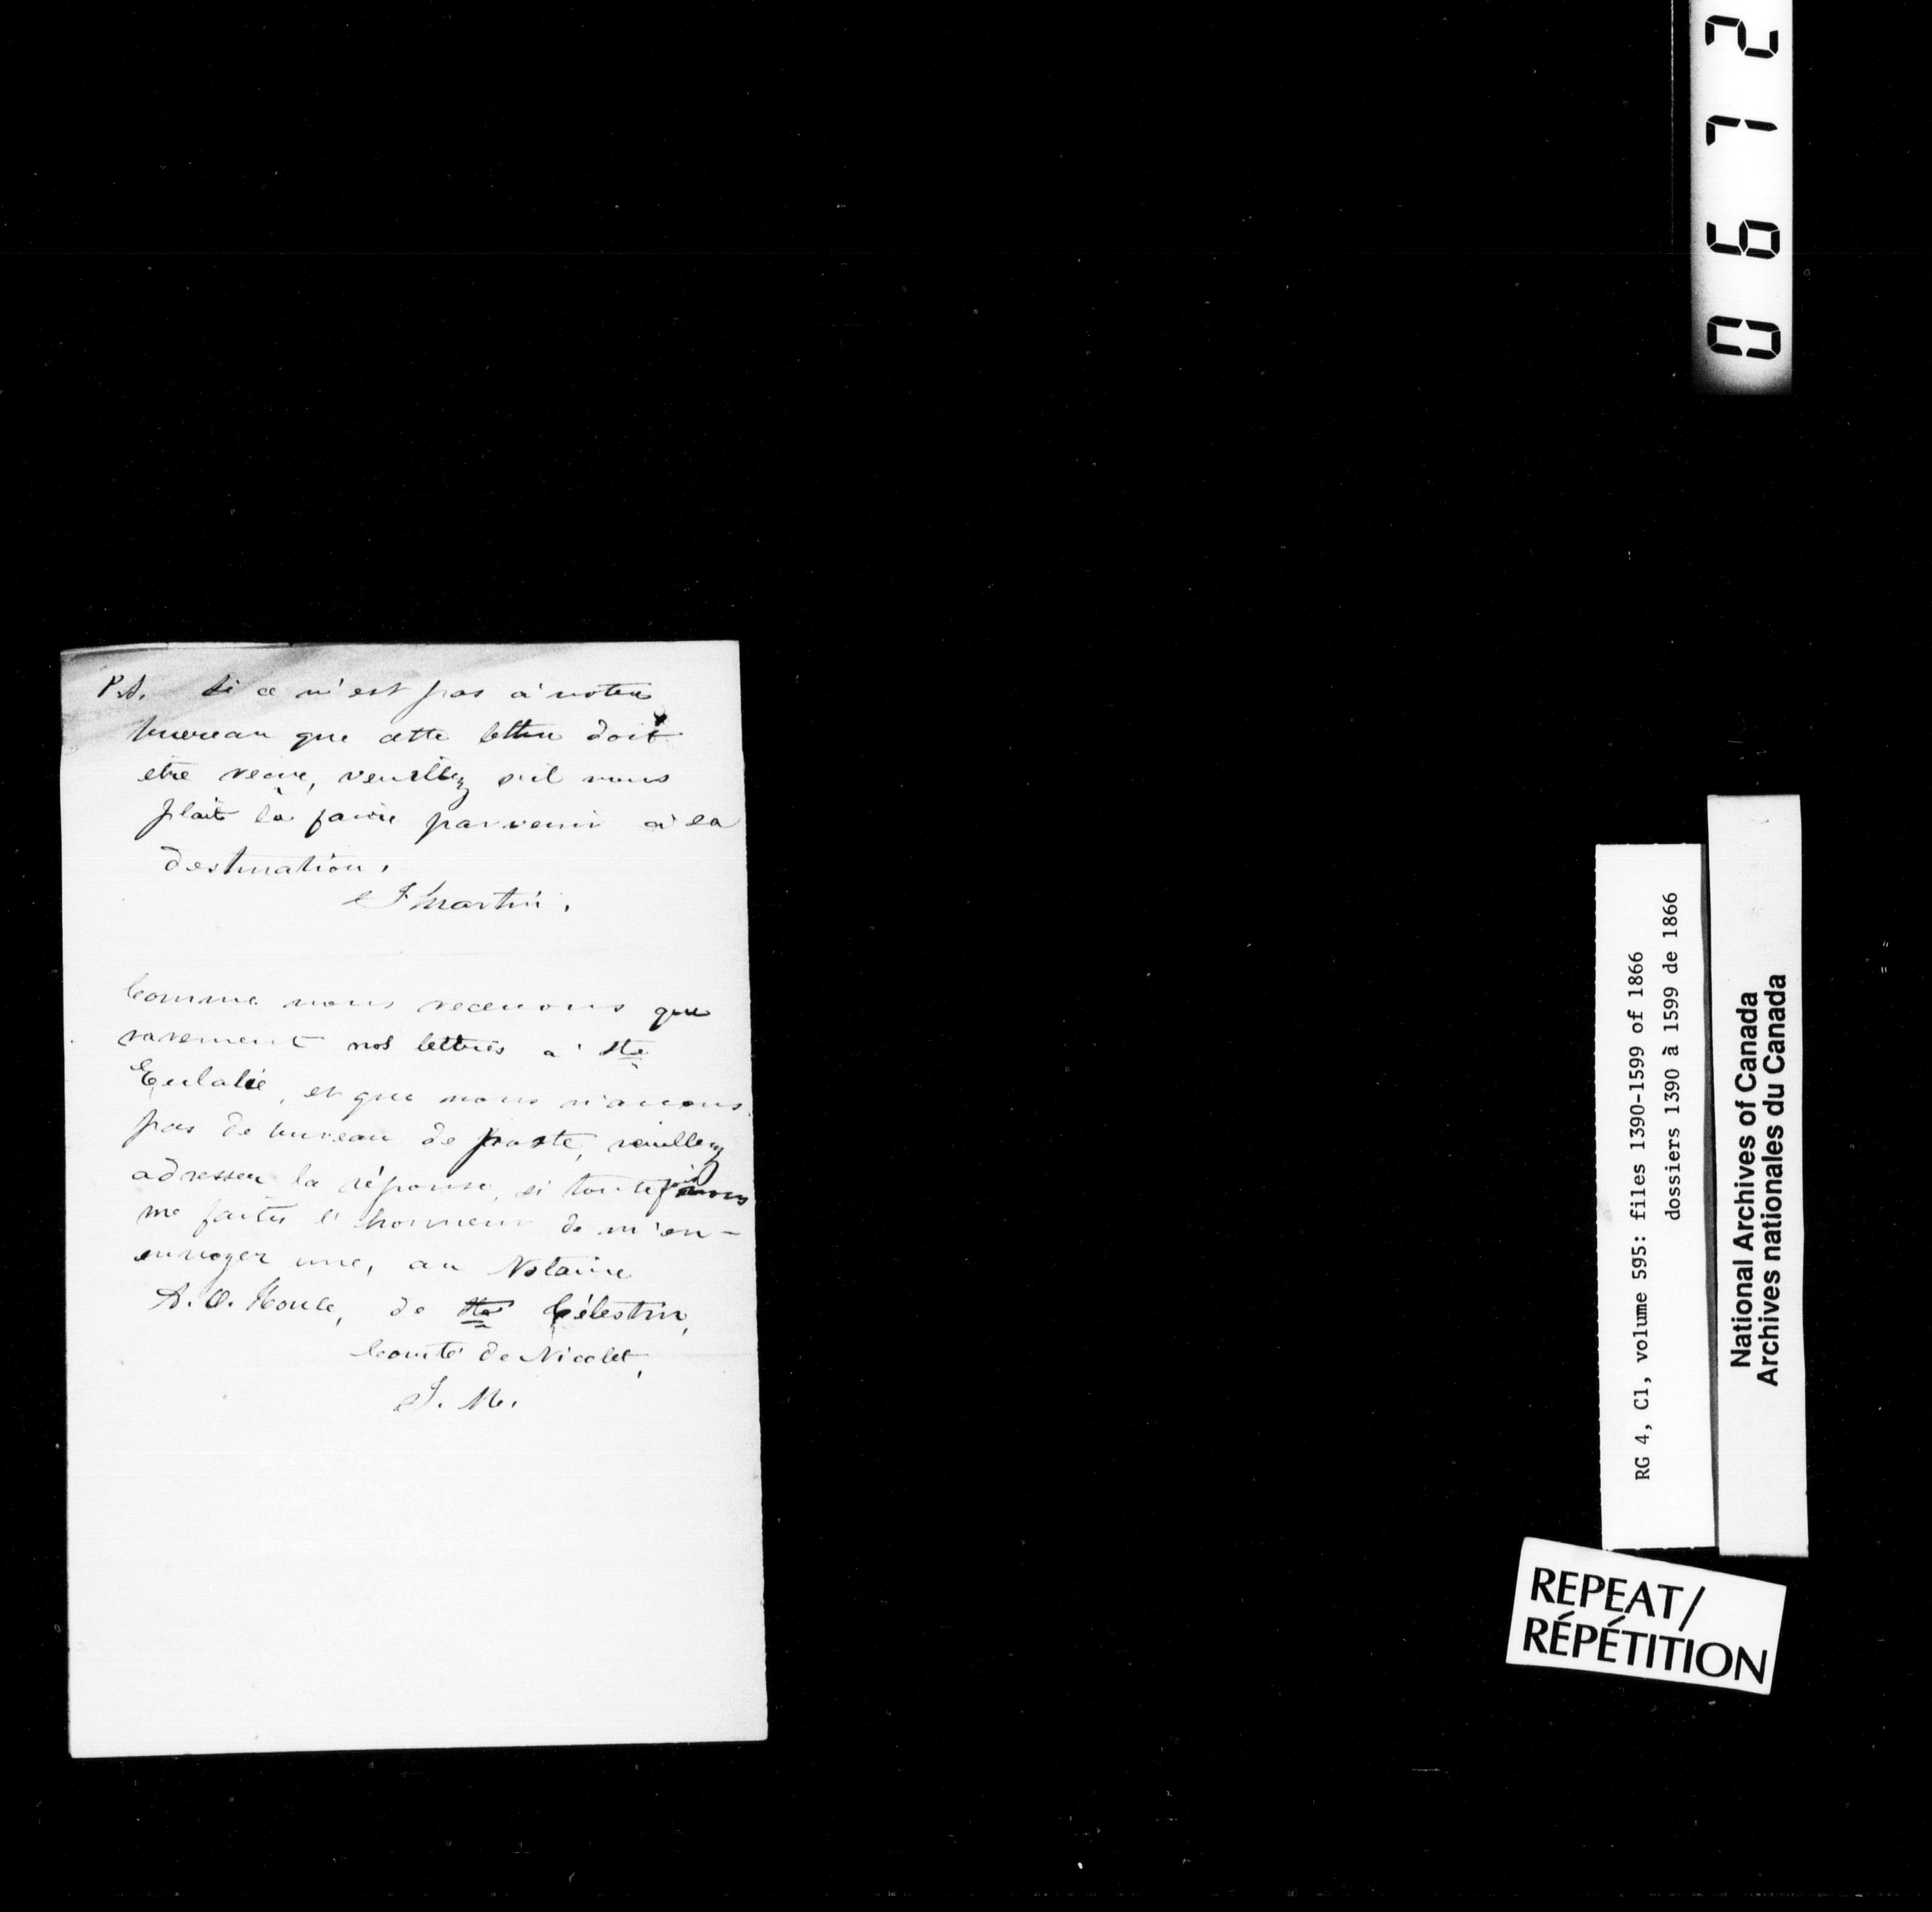 P.S. Si ce n'est pas à votre
bureau que cette lettre doit
etre reçue, veuillez s'il vous
plait la faire parvenir à sa
destination.
J Martin.
Comme nous recevons que
rarement nos lettres a Ste
Eulalie, et que nous n'avons
pas de bureau de poste, veuillez
adresser la réponse, si toutefois vous
me faites l'honneur de m'en-
envoyer une, au Notaire
A. O. Houle, de Ste Célestin,
Comté de Nicolet,
J. M.
0672
RG 4, C1, volume 595: files 1390-1599 of 1866
dossiers 1390 à 1599 de 1866
National Archives of Canada
Archives nationales du Canada
REPEAT/
RÉPÉTITION